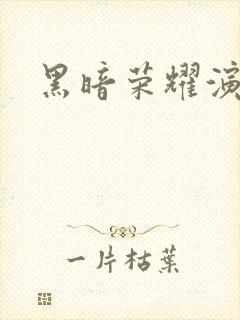 黑暗荣耀演
一片枯葉